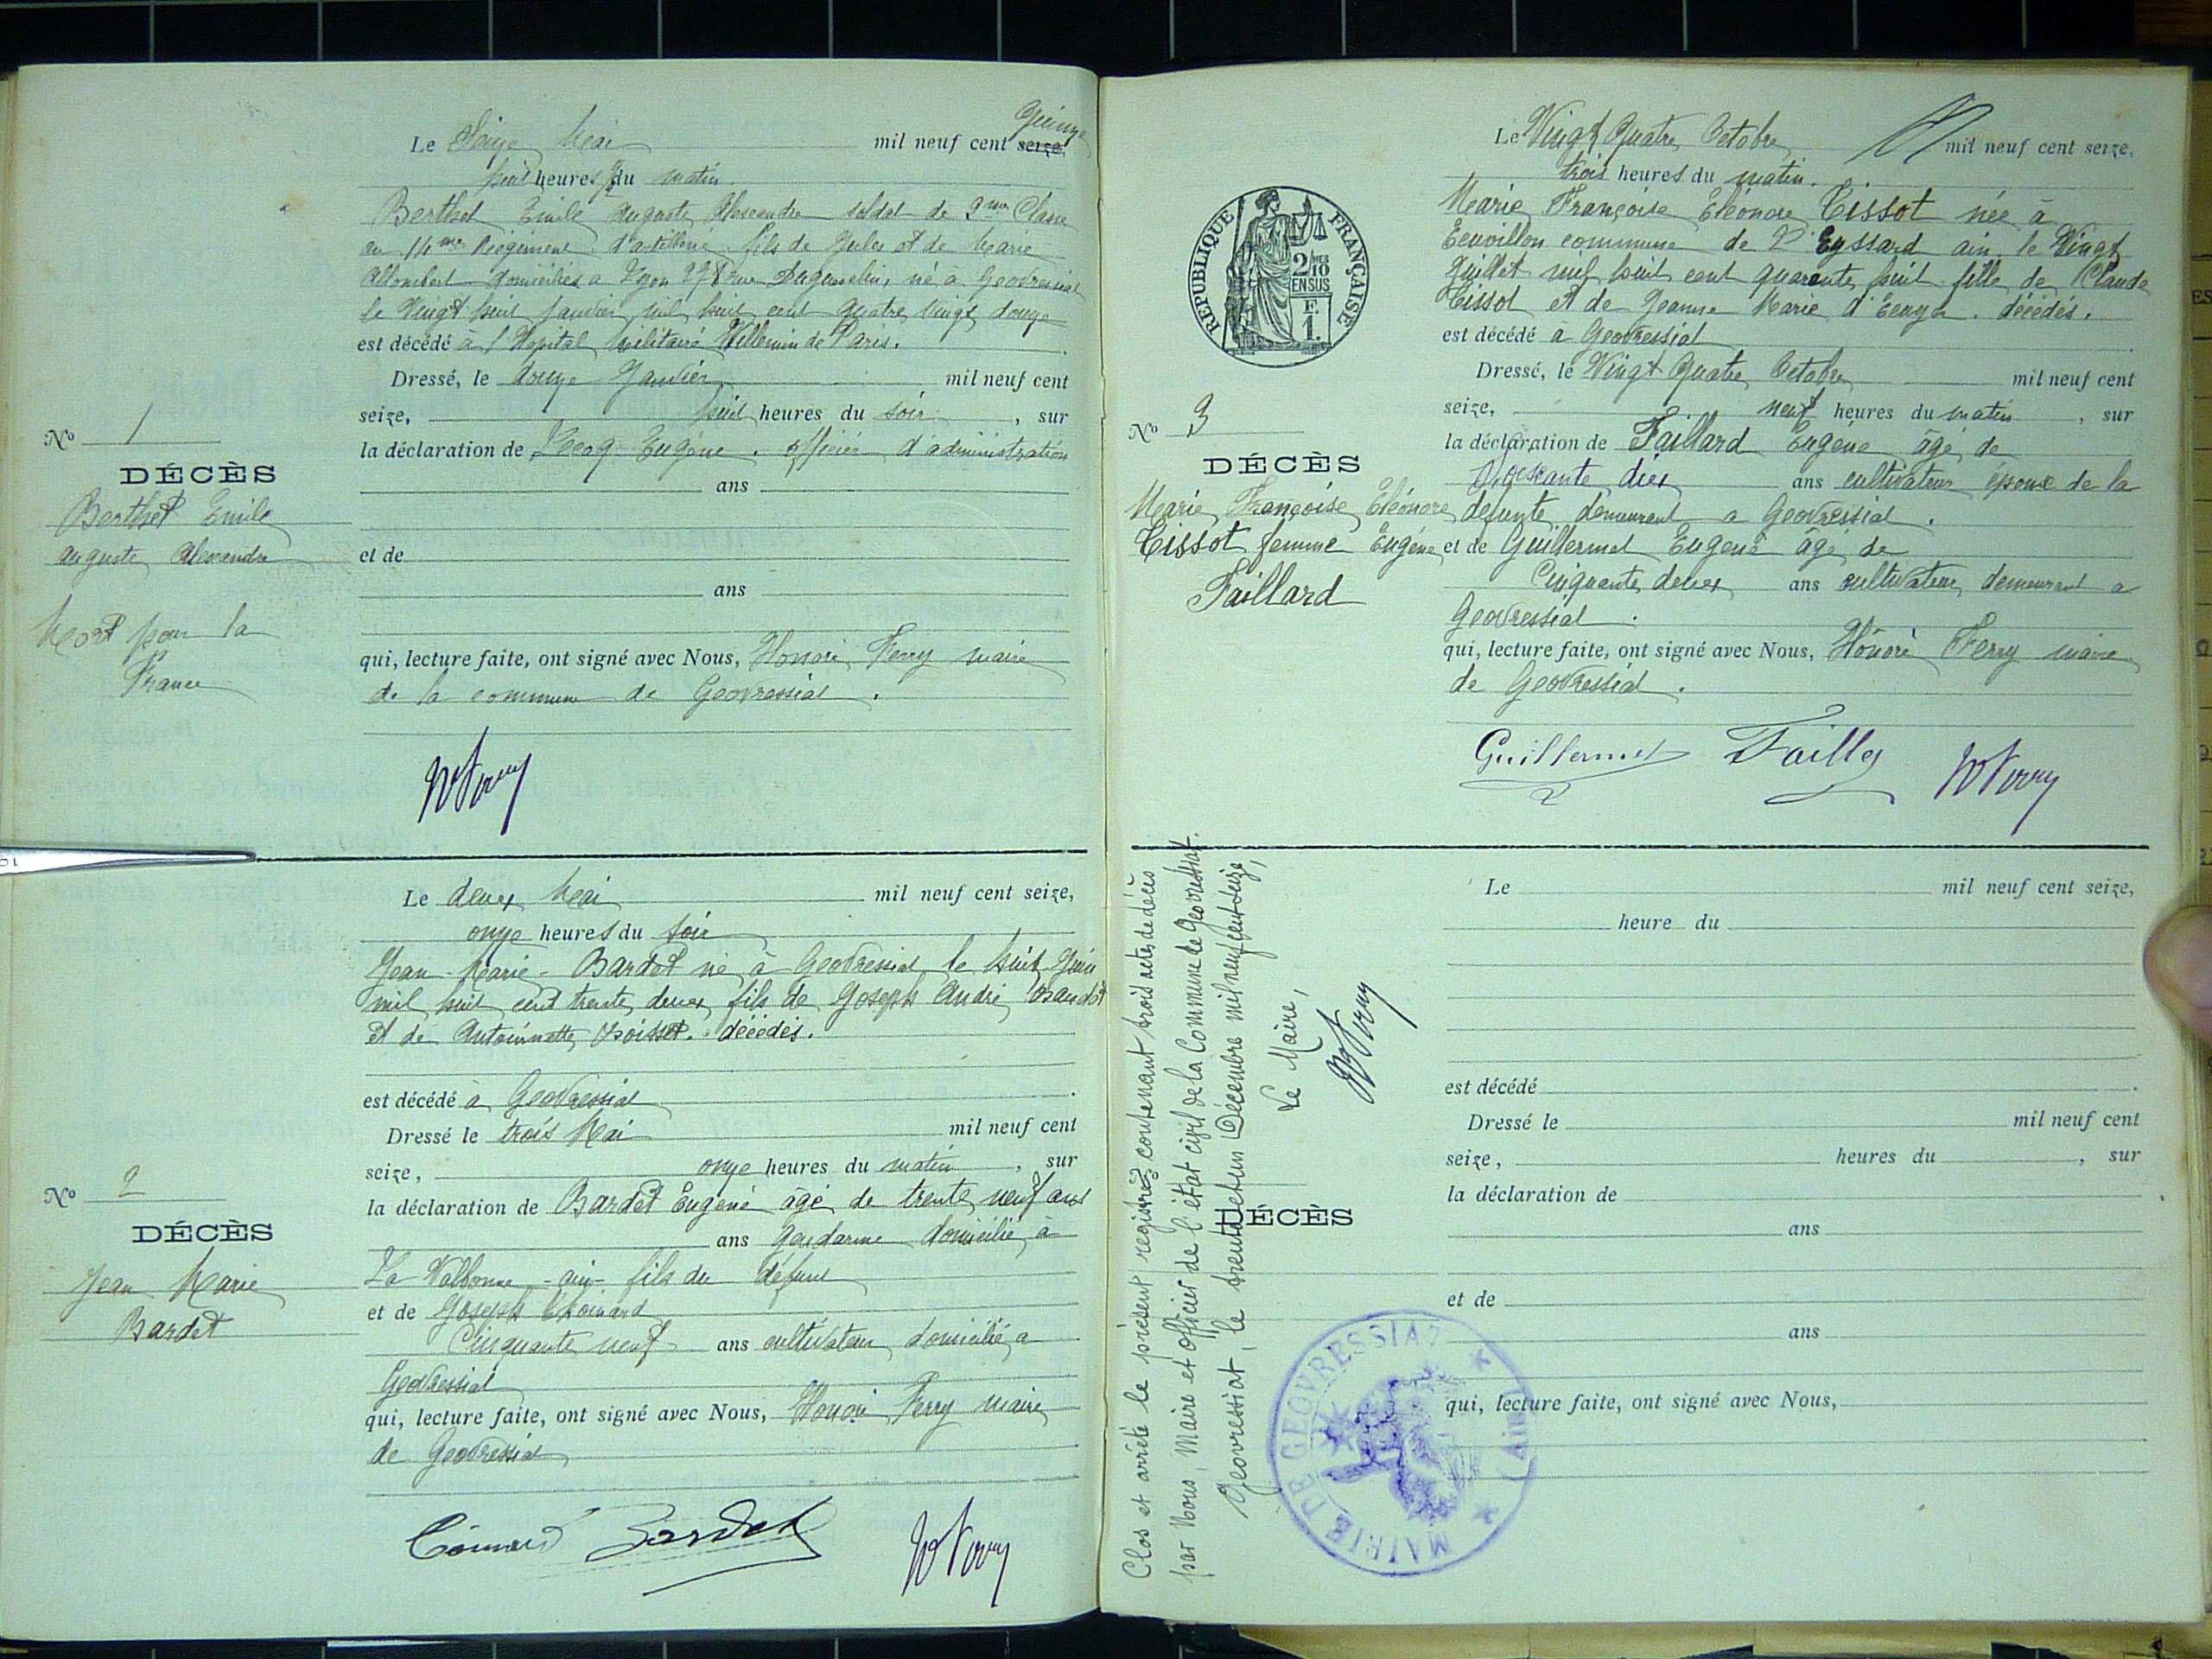 Le Seize Mai mil neuf cent seize, Quinze
huit heures du matin
Berthet Emile Auguste Alexandre soldat de 2me Classe
au Régiment d'artillerie fils de Jules et de Marie
Allombert domiciliés a Lyon rue Duguesclin, né à Geovressiat
le Vingt huit janvier mil huit cent quatre Vingt douze
est décédé à l'Hopital Militaire Villemin de Paris.
Dressé, le douze Janvier mil neuf cent
seize, huit heures du soir, sur
la déclaration de Lecoq Eugène. officier d'administration
ans
et de
ans
qui, lecture faite, ont signé avec Nous, Honoré Ferry maire
de la commune de Geovressiat.
No 1
DÉCÈS
Berthet Emile
Auguste Alexandre
Mort pour la
France
HFerry
Le deux Mai mil neuf cent seize,
onze heures du soir
Jean-Marie-Bardet né à Geovressiat le huit Juin
mil huit cent trente deux fils de Joseph André Bardet
et de Antoinette Poisset. décédés.
est décédé à Geovressiat
Dressé le trois Mai mil neuf cent
seize, onze heures du matin, sur
la déclaration de Bardet Eugène âgé de trente neuf ans
ans gendarme domicilié à
La Valbonne -ain- fils du défunt
et de Joseph
Cinquante neuf ans cultivateur domicilié a
Geovressiat
qui, lecture faite, ont signé avec Nous, Honoré Ferry maire
de Geovressiat
No 2
DÉCÈS
Jean Marie
Bardet
Bardet HFerry
Le Vingt Quatre Octobre mil neuf cent seize,
trois heures du matin.
Marie Françoise Eléonore Tissot née à
commune de l'Eyssard ain le Vingt
Juillet mil huit cent quarante huit fille de Claude
Tissot et de Jeanne Marie décédés.
est décédé a Geovressiat
Dressé, le Vingt Quatre Octobre mil neuf cent
seize, neuf heures du matin, sur
la déclaration de Faillard Eugène âgé de
Soixante dix ans cultivateur époux de la
défunte demeurant a Geovressiat.
et de Guillermet Eugene âgé de
Cinquante deux ans cultivateur demeurant a
Geovressiat.
qui, lecture faite, ont signé avec Nous, Honoré Ferry maire
de Geovressiat.
REPUBLIQUE FRANÇAISE
2/10 EN SUS
F. 1.
No 3
DÉCÈS
Marie Françoise Eléonore
Tissot femme Eugène
Faillard
Guillermet HFerry
Le mil neuf cent seize,
heure du
est décédé
Dressé le mil neuf cent
seize, heures du , sur
la déclaration de
ans
et de
ans
qui, lecture faite, ont signé avec Nous,
DÉCÈS
Clos et arrêté le présent registre contenant trois actes de décès
par Nous, Maire et officier de l'état civil de la Commune de Geovressiat.
Geovressiat, le trente et un Décembre mil neuf cent seize,
Le Maire,
HFerry
MAIRIE DE GEOVRESSIAT
(Ain)